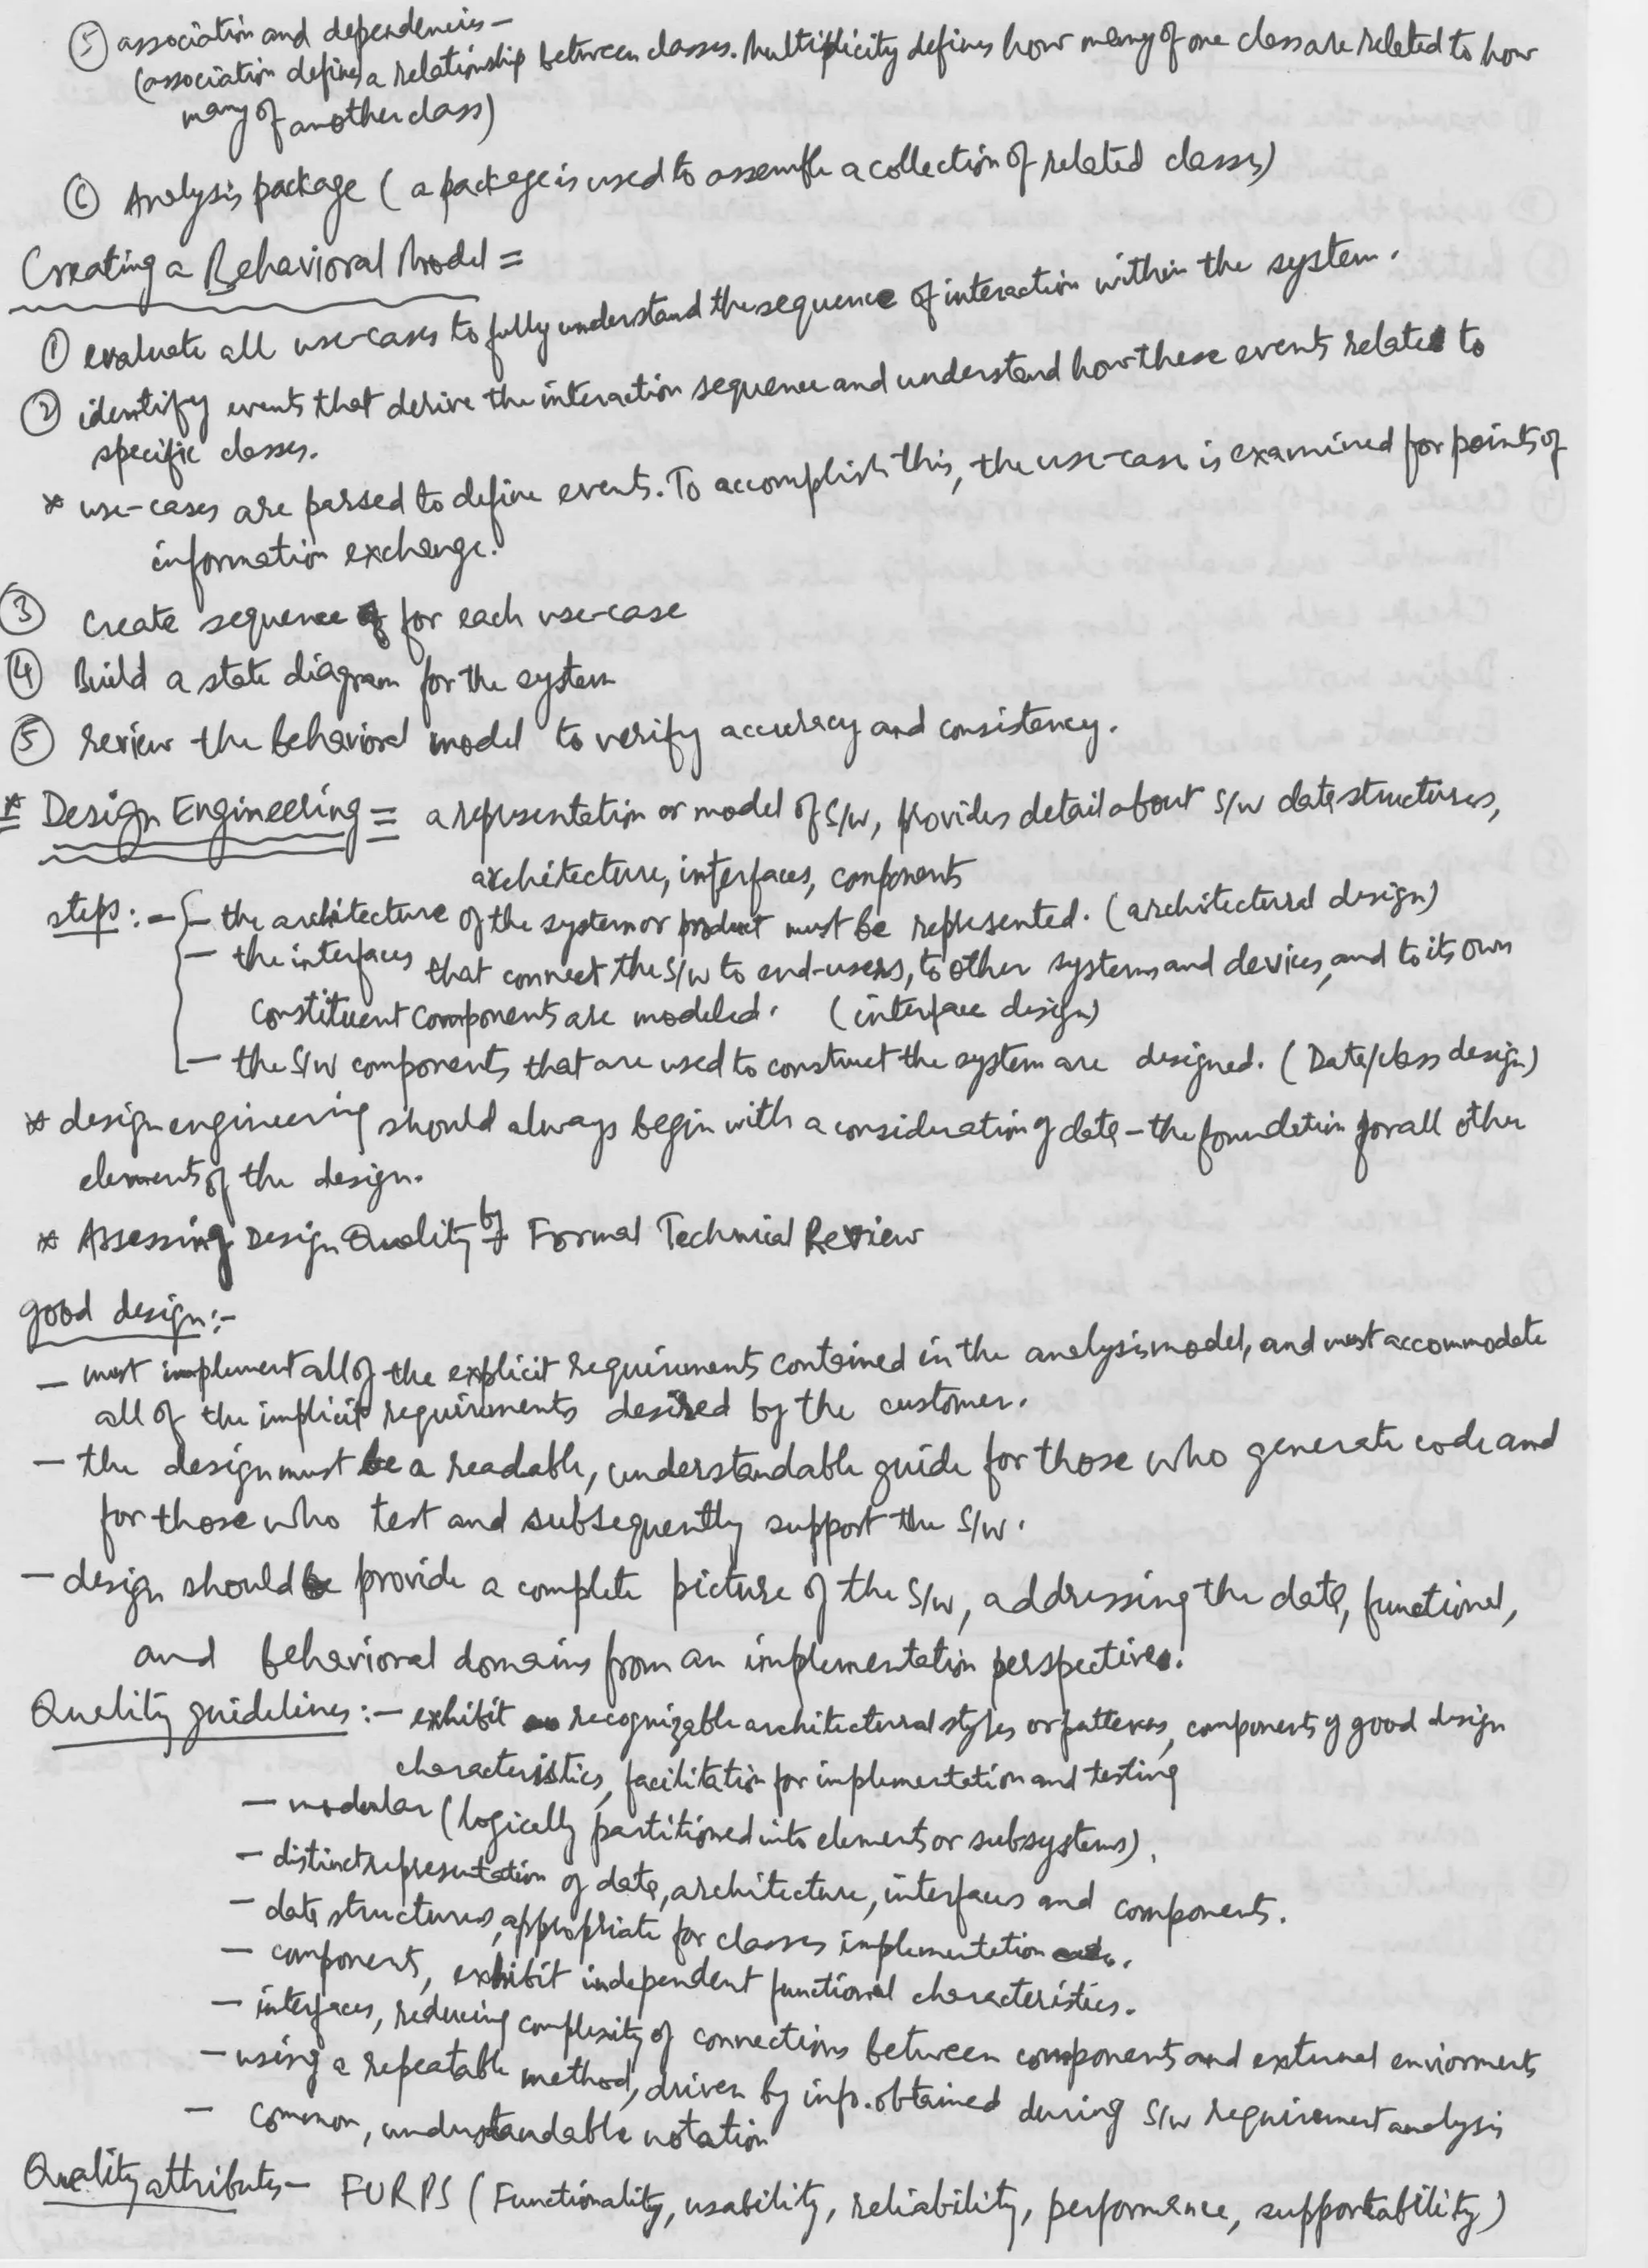 ⑤ association and dependencies –
(association defines a relationship between classes. Multiplicity defines how many of one class are related to how
many of another class)
⑥ Analysis package ( a package is used to assemble a collection of related classes)
Creating a Behavioral Model =
① evaluate all use-cases to fully understand the sequence of interaction within the system.
② identify events that derive the interaction sequence and understand how these events relate to
specific classes.
* use-cases are parsed to define events. To accomplish this, the use-case is examined for points of
information exchange.
③ Create sequence for each use-case
④ Build a state diagram for the system
⑤ review the behavioral model to verify accuracy and consistency.
* Design Engineering = a representation or model of S/W, provides detail about S/W data structures,
architecture, interfaces, components
steps :- – the architecture of the system or product must be represented. (architectural design)
– the interfaces that connect the S/W to end-users, to other systems and devices, and to its own
constituent components are modeled. (interface design)
– the S/W components that are used to construct the system are designed. (Data/class design)
* design engineering should always begin with a consideration of data – the foundation for all other
elements of the design.
* Assessing Design Quality by Formal Technical Review
good design :-
– must implement all of the explicit requirements contained in the analysis model, and must accommodate
all of the implicit requirements desired by the customer.
– the design must be a readable, understandable guide for those who generate code and
for those who test and subsequently support the S/W.
– design should provide a complete picture of the S/W, addressing the data, functional,
and behavioral domains from an implementation perspective.
Quality guidelines :- exhibit recognizable architectural styles or patterns, components of good design
characteristics, facilitation for implementation and testing
– modular (logically partitioned into elements or subsystems).
– distinct representation of data, architecture, interfaces and components.
– data structures, appropriate for classes implementation
– components, exhibit independent functional characteristics.
– interfaces, reducing complexity of connections between components and external enviorments
– using a repeatable method, driven by info. obtained during S/W requirement analysis
– common, understandable notation
Quality attributes – FURPS (Functionality, usability, reliability, performance, supportability)